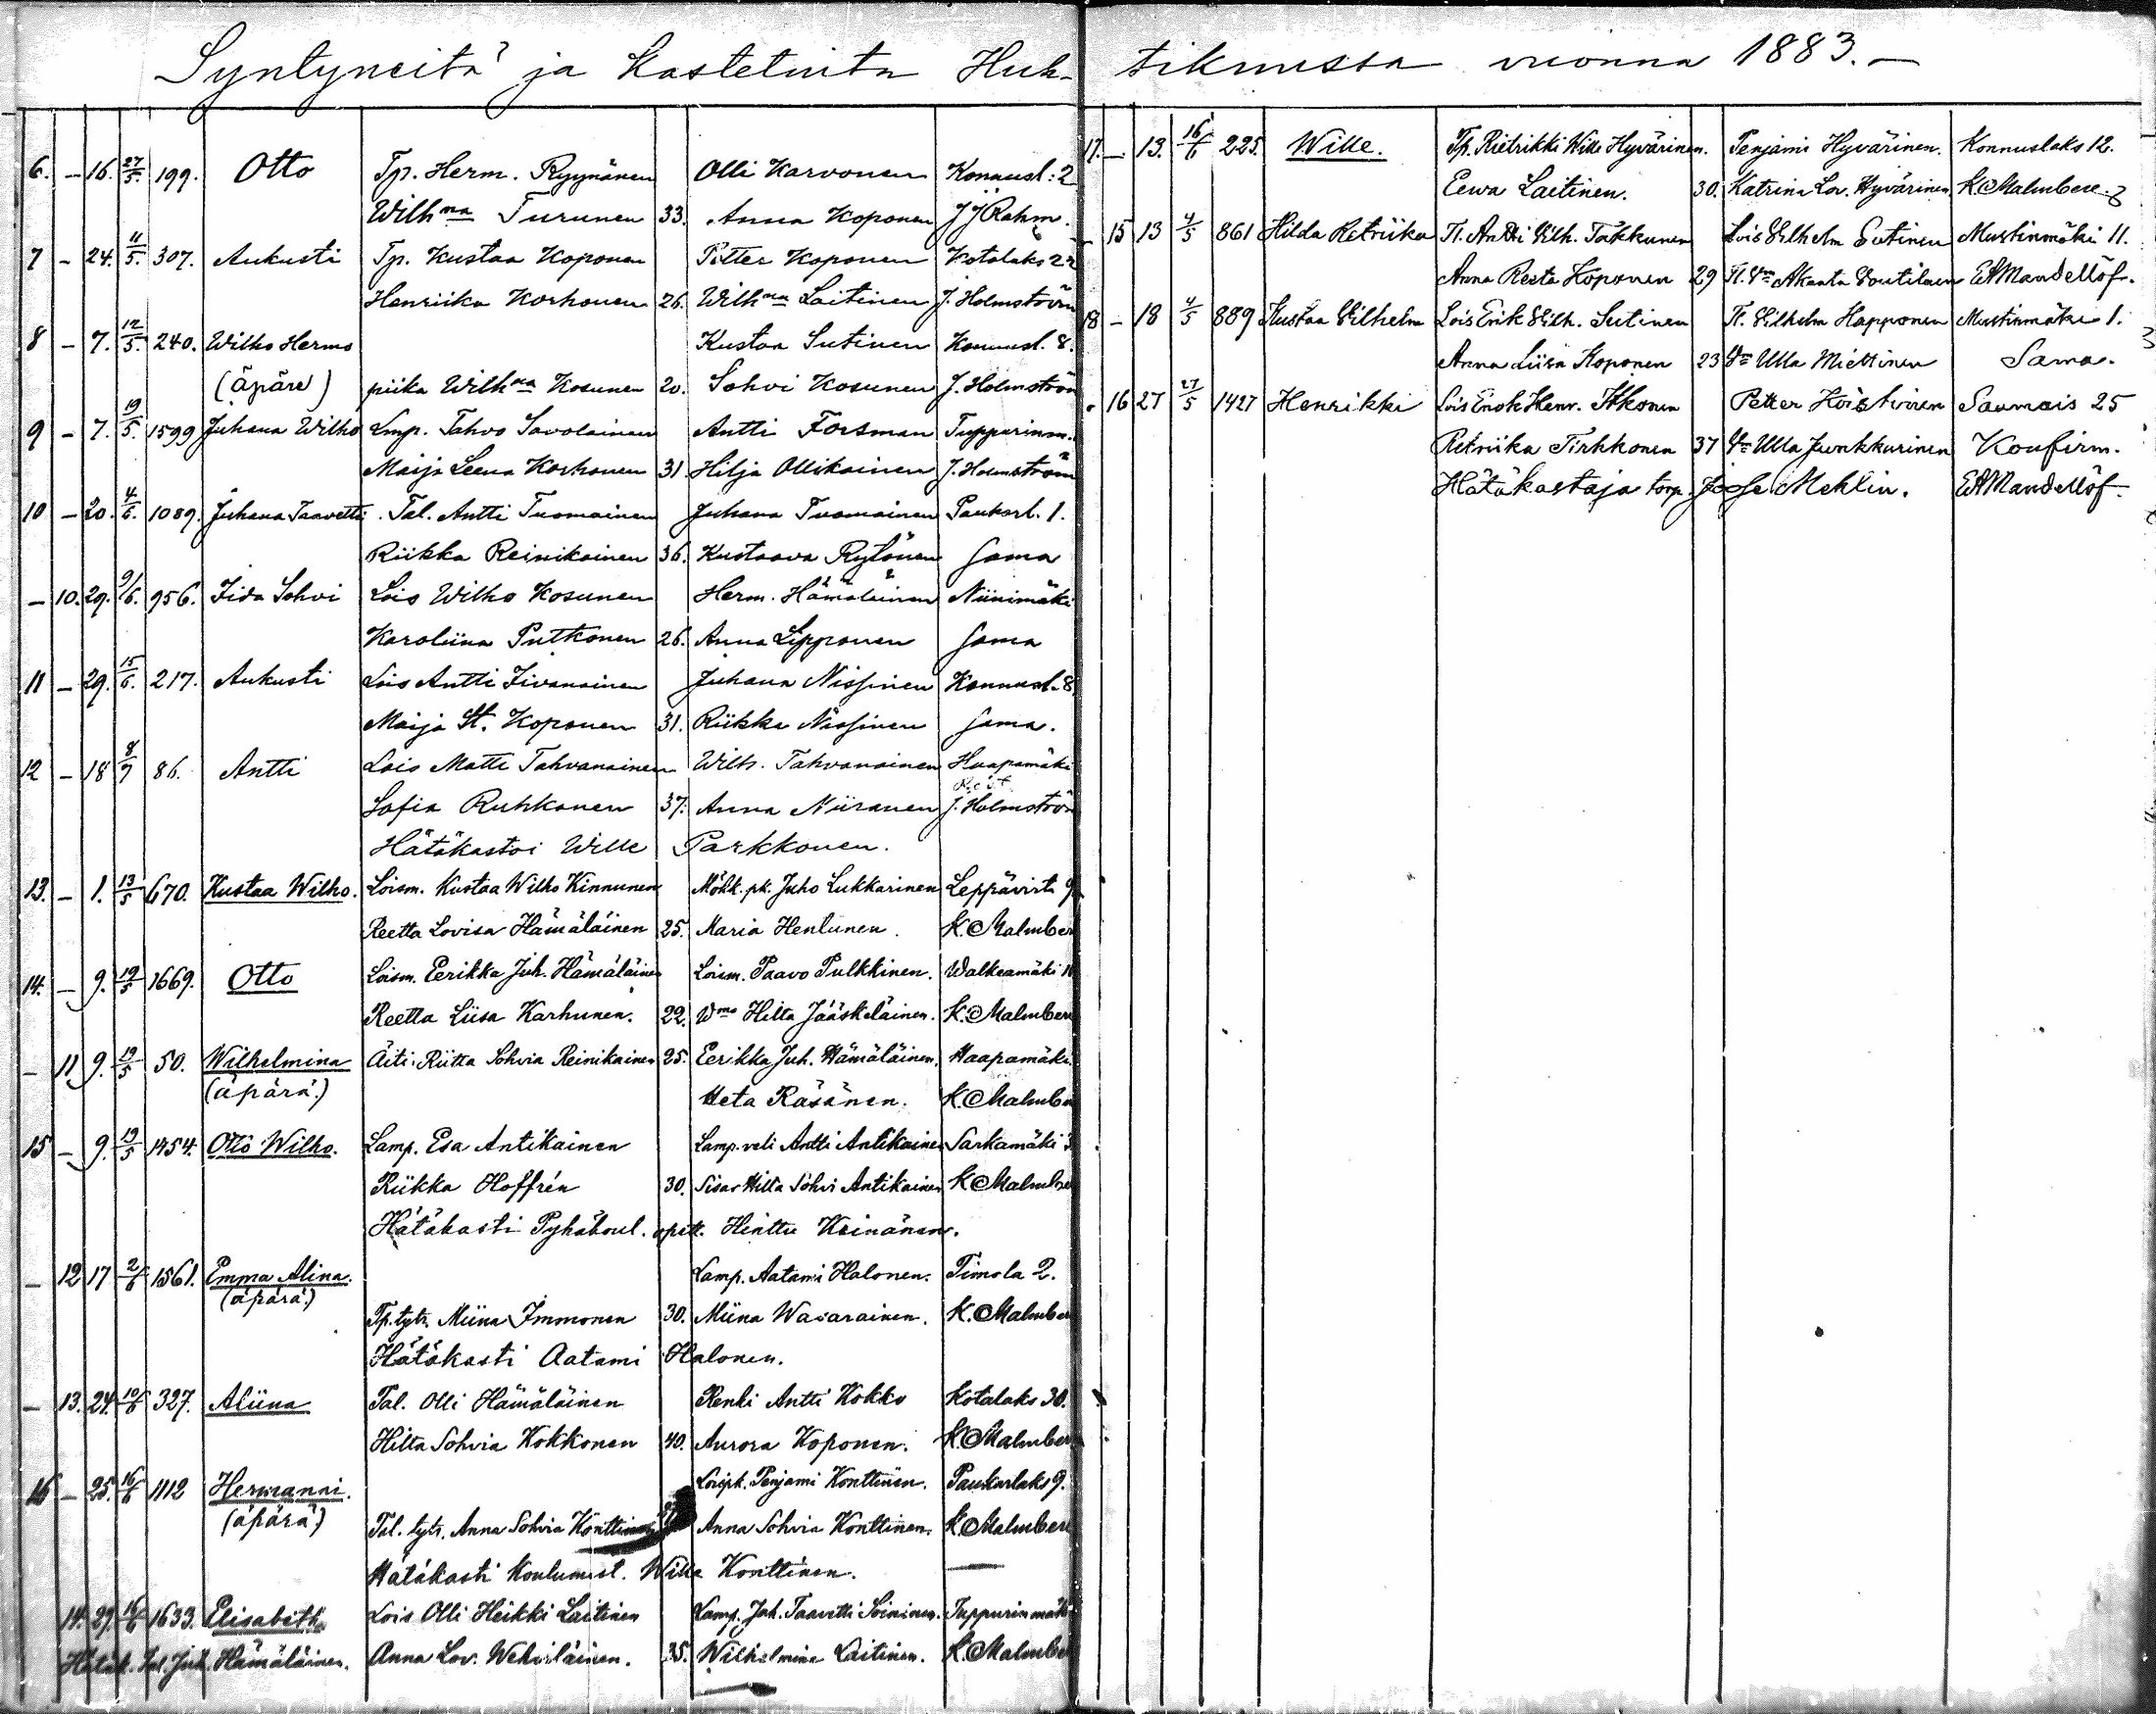 Syntyneitä ja Kastetuita Huh-
6. – 16. 27/5. 199. Otto Tp. Herm. Ryynänen Olli Karvonen Konnusl: 2
Wilhna Turunen 33. Anna Koponen J J Rahm.
7 – 24. 11/5. 307. Aukusti Tp. Kustaa Koponen Petter Koponen Kotalaks 22
Henriika Korhonen 26. Wilhna Laitinen J. Holmström
8 – 7. 12/5. 240. Wilho Herms Kustaa Sutinen Konnusl. 8.
(äpäre) piika Wilhna Kosunen 20. Sohvi Kosunen J. Holmström
9 – 7. 19/5. 1599 Juhana Wilho Lmp. Tahvo Savolainen Antti Forsman Tuppurinm.
Maija Leena Korhonen 31. Hilja Ollikainen J. Holmström
10 – 20. 4/6. 1089. Juhana Taavetti. Tal. Antti Tuomainen Juhana Tuomainen Paukarl. 1.
Riikka Reinikainen 36. Kustaava Rytönen Sama
– 10. 29. 9/6. 956. Iida Sohvi Lois Wilho Kosunen Herm. Hämäläinen Niinimäki
Karoliina Putkonen 26. Anna Lipponen Sama
11 – 29. 15/6. 217. Aukusti Lois Antti Iivanainen Juhana Nissinen Konnusl. 8.
Maija St. Koponen 31. Riikka Nissinen Sama.
12 – 18 8/7 86. Antti Lois Matti Tahvanainen Wilh. Tahvanainen Haapamäki
Sofia Ruhkanen 37. Anna Niiranen J. Holmström
Hätäkastoi Wille Parkkonen.
13. – 1. 13/5 670. Kustaa Wilho. Loism. Kustaa Wilho Kinnunen Mökk. pk. Juho Lukkarinen Leppävirta 9
Reetta Lovisa Hämäläinen 25. Maria Henlunen. K. Malmber
14. – 9. 19/5 1669. Otto Loism. Eerikka Juh. Hämäläinen Loism. Paavo Pulkkinen. Walkeamäki 11
Reetta Liisa Karhunen. 22. Wmo Hilta Jääskeläinen. K. Malmber
– 11 9. 19/5 50. Wilhelmina Äiti: Riitta Sohvia Reinikainen 25. Eerikka Juh. Hämäläinen. Haapamäki.
(äpärä.) Heta Räsänen. K. Malmber
15 – 9. 19/5 1454. Otto Wilho. Lamp. Esa Antikainen Lamp. veli Antti Antikainen Sarkamäki 3
Riikka Hoffrén 30. Sisar Hilta Sohvi Antikainen K Malmber
Hätäkasti Pyhäkoul. opett. Hinttu Keinänen.
– 12 17 2/6 1561. Emma Alina. Lamp. Aatami Halonen. Timola 2.
(äpärä.)
Tp. tytr. Miina Immonen 30. Miina Wasarainen. K. Malmber
Hätäkasti Aatami Halonen.
– 13. 24. 10/6 327. Aliina Tal. Olli Hämäläinen Renki Antti Kokko Kotalaks 30.
Hilta Sohvia Kokkonen 40. Aurora Koponen. K. Malmber
16 – 25. 16/6 1112 Hermanni. Loispk. Penjami Konttinen. Paukarlaks 9.
(äpärä.) Tal. tytr. Anna Sohvia Konttinen Anna Sohvia Konttinen. K. Malmber
Hätäkasti Koulumest. Wille Konttinen.
14. 29. 16/6 1633. Elisabeth Lois Olli Heikki Laitinen Lamp. Joh. Taavetti Soininen. Tuppurinmäki
Hätäk. Tal. Juh. Hämäläinen. Anna Lov. Wehviläinen. 35. Wilhelmina Laitinen. K. Malmber
tikuussa vuonna 1883.–
17. – 13. 16/6 225. Wille. Tp. Rietrikki Wille Hyvärinen. Penjami Hyvärinen. Konnuslaks 12.
Eewa Laitinen. 30. Katrina Lov. Hyvärinen K Malmberg
– 15 13 4/5 861 Hilda Retriika Tl. Antti Vilh. Takkunen Lois Vilhelm Sutinen Mustinmäki 11.
Anna Reeta Koponen 29 Akanta Voutilainen EAMandellöf.
18 – 18 4/5 889 Kustaa Vilhelm Lois Erik Vilh. Sutinen Tl. Vilhelm Happonen Mustinmäki 1.
Anna Liisa Koponen 23 Vm Ulla Miettinen Sama.
16 27 27/5 1427 Henrikki Lois Enok Henr. Ikkonen Petter Koistinen Saamais 25
Retriika Tirkkonen 37 Vm Ulla Junkkarinen Konfirm.
Hätäkastaja torp. Mehlin. EAMandellöf.